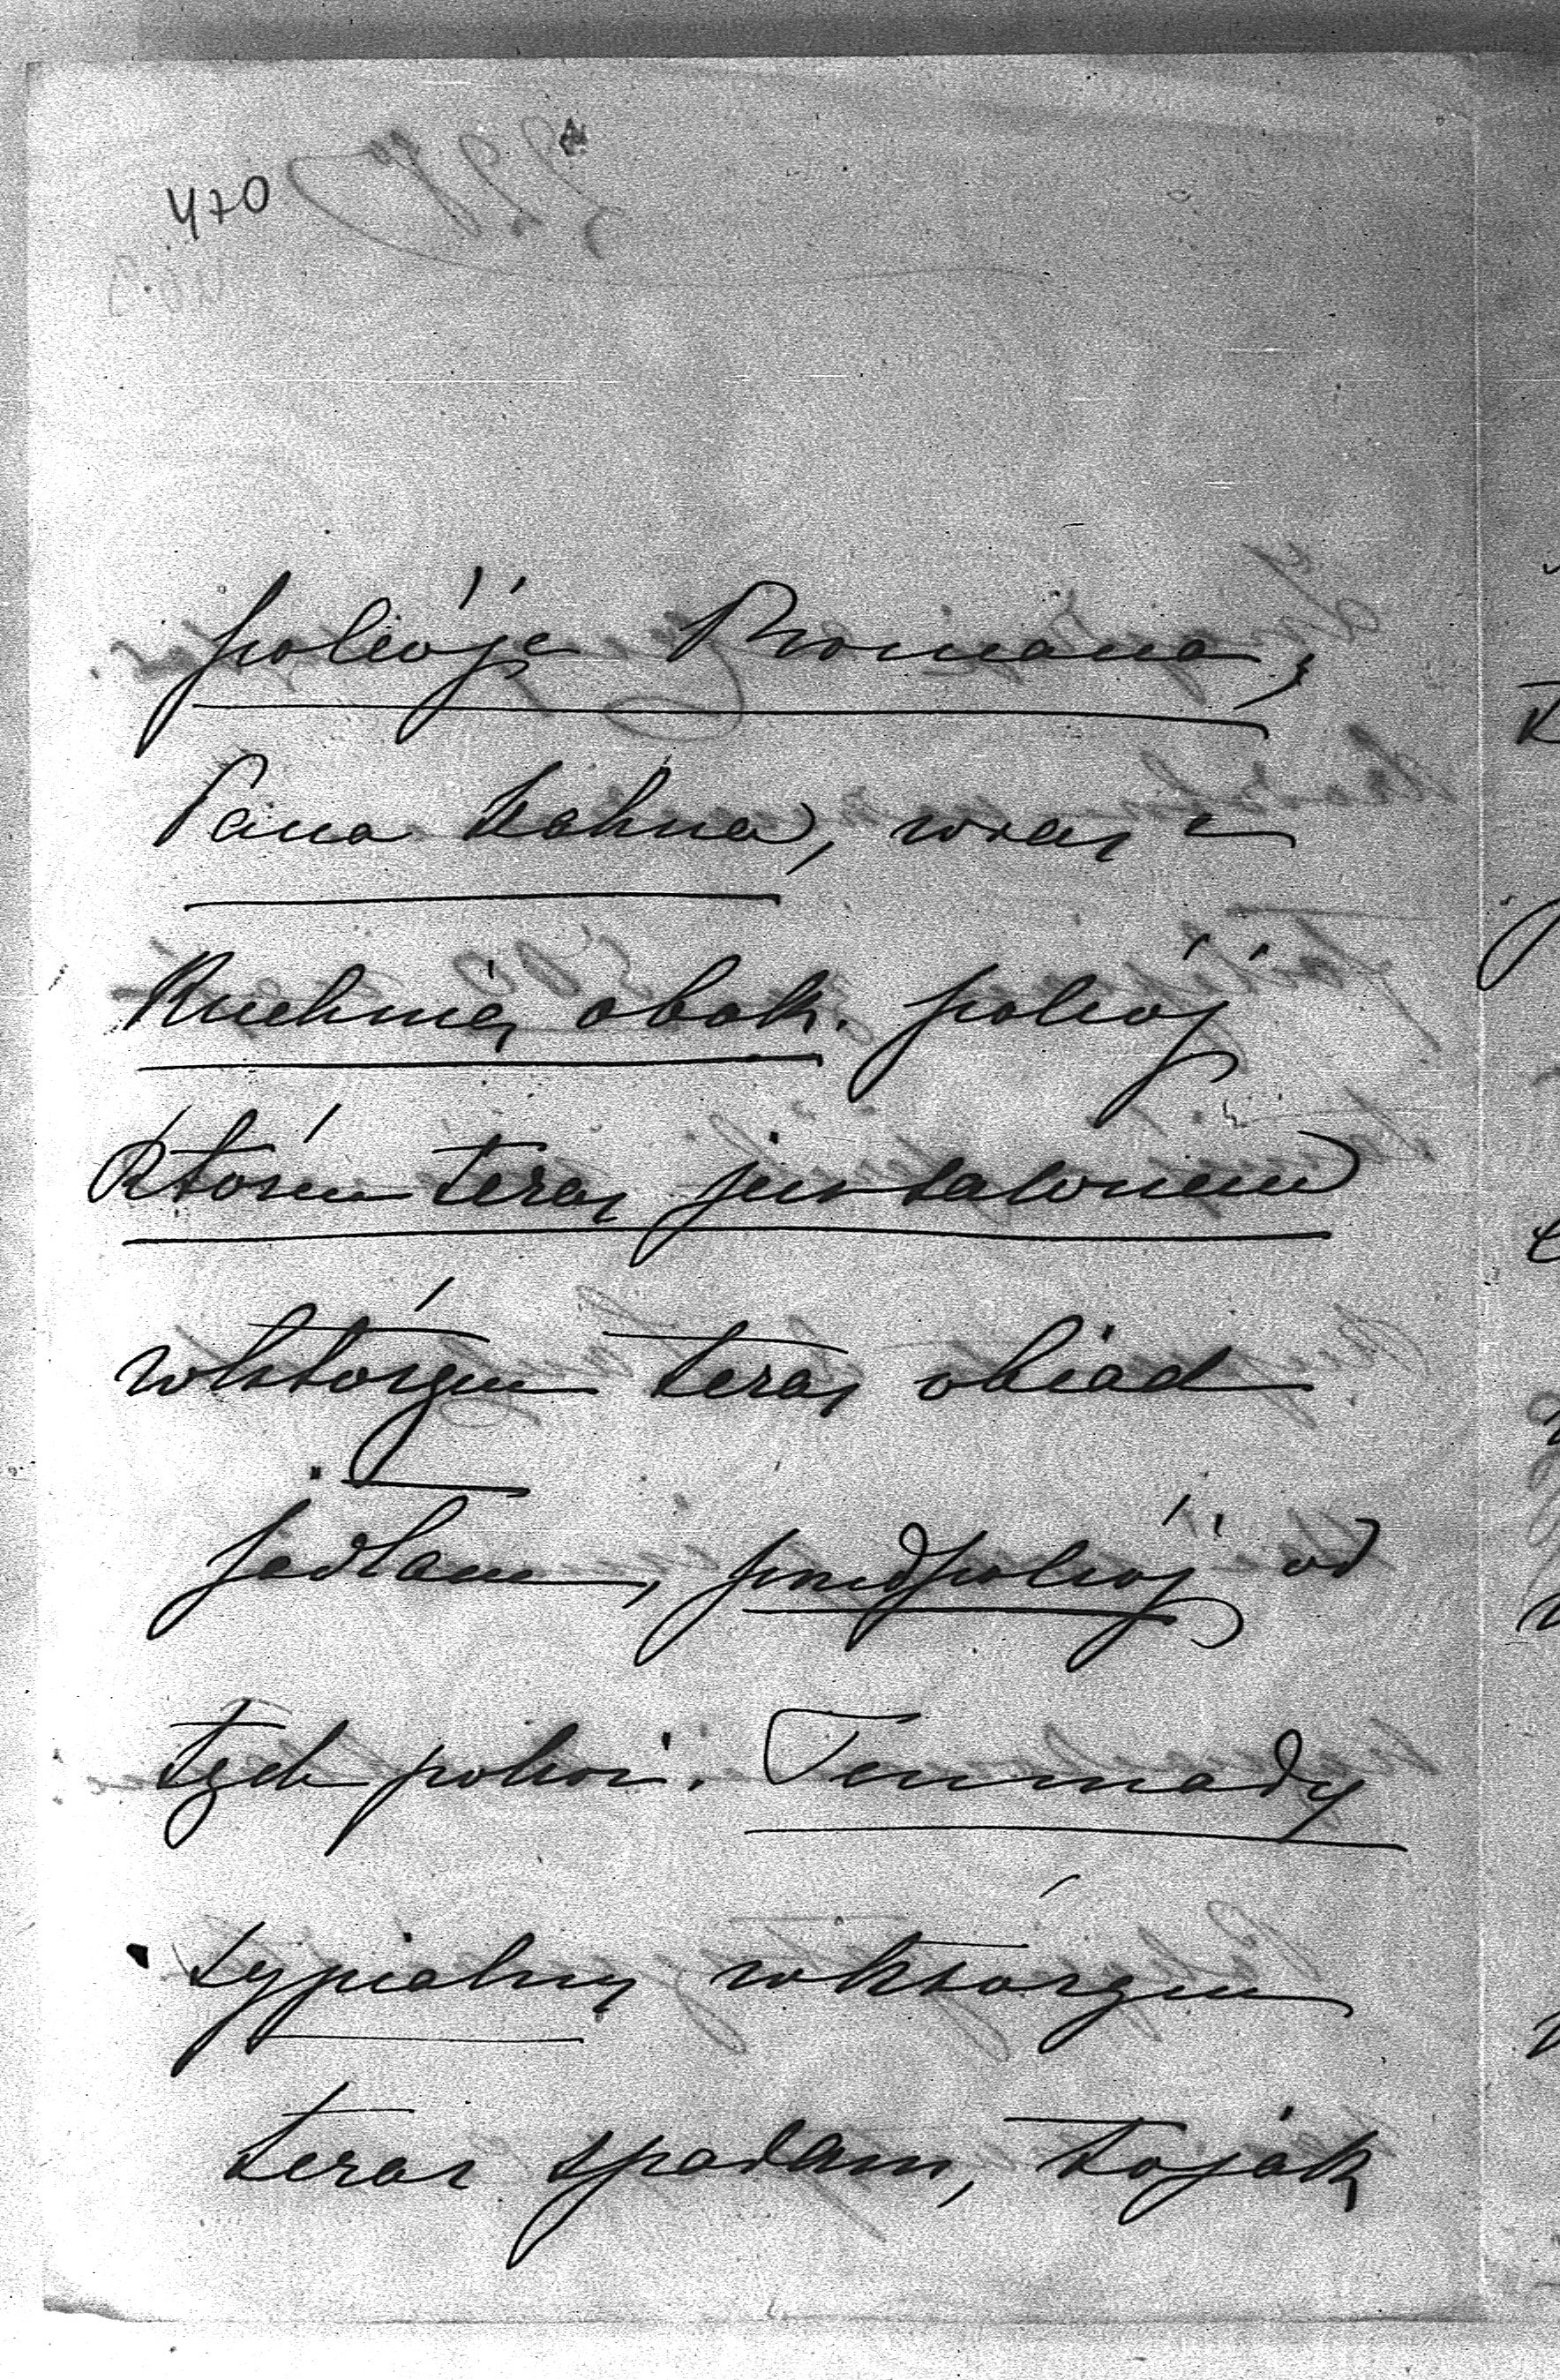 470
pokóje Romana,
Pana Hahna, wraz z
Kuchnią obok. pokój
Którem teraz jest salonem
wktórym teraz obiad
jadłam, przedpokój od
tych pokoi. Ten mady
sypialny wktórym
teraz spałam, to ják